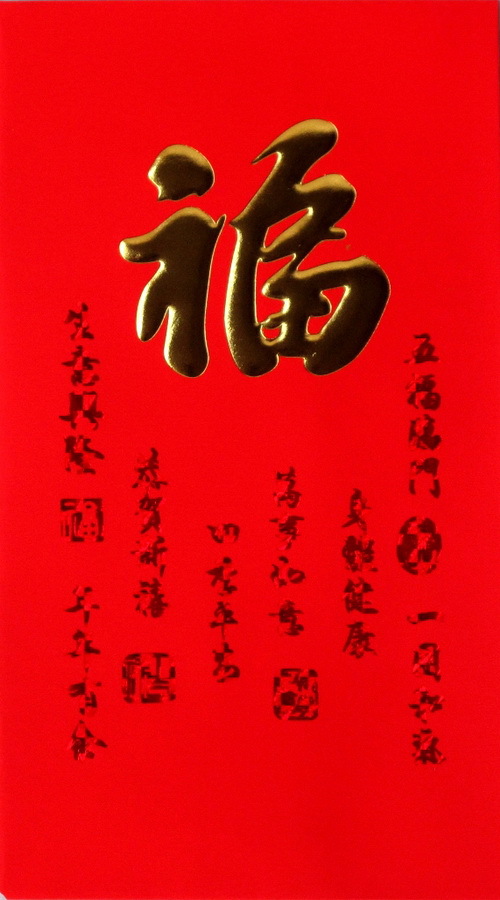 福
五福臨門
一團和氣
身體健康
萬事如意
四季平安
恭賀新禧
生意興隆
福
年年有餘